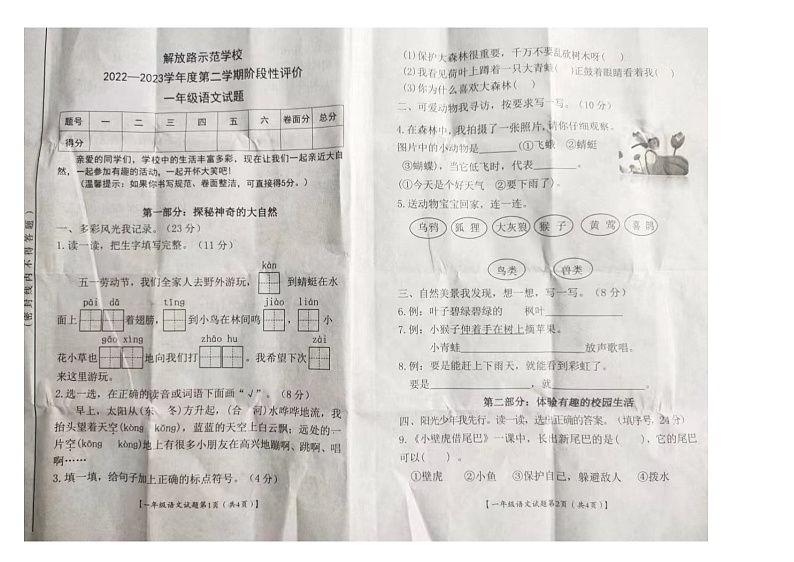 解放路示范学校
2022—2023学年度第二学期阶段性评价
一年级语文试题
题号 一 二 三 四 五 六 卷面分 总分
得分
亲爱的同学们，学校中的生活丰富多彩，现在让我们一起亲近大自
然，一起参加有趣的活动，一起开怀大笑吧！
（温馨提示：如果你书写规范、卷面整洁，可直接得5分。）
第一部分：探秘神奇的大自然
一、多彩风光我记录。（23 分）
1.读一读，把生字填写完整。（11 分）
kàn
五一劳动节，我们全家人去野外游玩， 到蜻蜓在水
pāi dǎ tīng jiào lián
面上 着翅膀， 到小鸟在林间鸣 ， 小
gāo xìng zhāo hu zài
花小草也 地向我们打 。我希望下次
来这里游玩。
2.选一选，在正确的读音或词语下面画“√”。（8 分）
早上，太阳从(东 冬)方升起，(合 河)水哗哗地流，我
抬头望着天空(kōng kòng)，蓝蓝的天空上白云飘；远处的一
片空(kōng kòng)地上有很多小朋友在高兴地蹦啊、跳啊、唱
啊……
3.填一填，给句子加上正确的标点符号。（4 分）
【一年级语文试题第1页（共4页）】
(密封线内不得答题)
(1)保护大森林很重要，千万不要乱砍树木呀( )
(2)我看见荷叶上蹲着一只大青蛙( )正鼓着眼睛看着我( )
(3)你为什么喜欢大森林( )
二、可爱动物我寻访，按要求写一写。（10 分）
4.在森林中，我拍摄了一张照片，请你仔细观察。
图片中的小动物是______（①飞蛾 ②蜻蜓
③蝴蝶），当它低飞时，代表________。
（①今天是个好天气 ②要下雨了）。
5.送动物宝宝回家，连一连。
乌鸦 狐狸 大灰狼 猴子 黄莺 喜鹊
鸟类 兽类
三、自然美景我发现，想一想，写一写。（8 分）
6.例：叶子碧绿碧绿的 枫叶________________
7.例：小猴子伸着手在树上摘苹果。
小青蛙________________________放声歌唱。
8.例：要是能赶上下雨天，就能看到彩虹了。
要是________________，就________________
第二部分：体验有趣的校园生活
四、阳光少年我先行。读一读，选出正确的答案。（填序号，24 分）
9.《小壁虎借尾巴》一课中，长出新尾巴的是( )，它的尾巴
可以( )。
①壁虎 ②小鱼 ③保护自己，躲避敌人 ④拨水
【一年级语文试题第2页（共4页）】